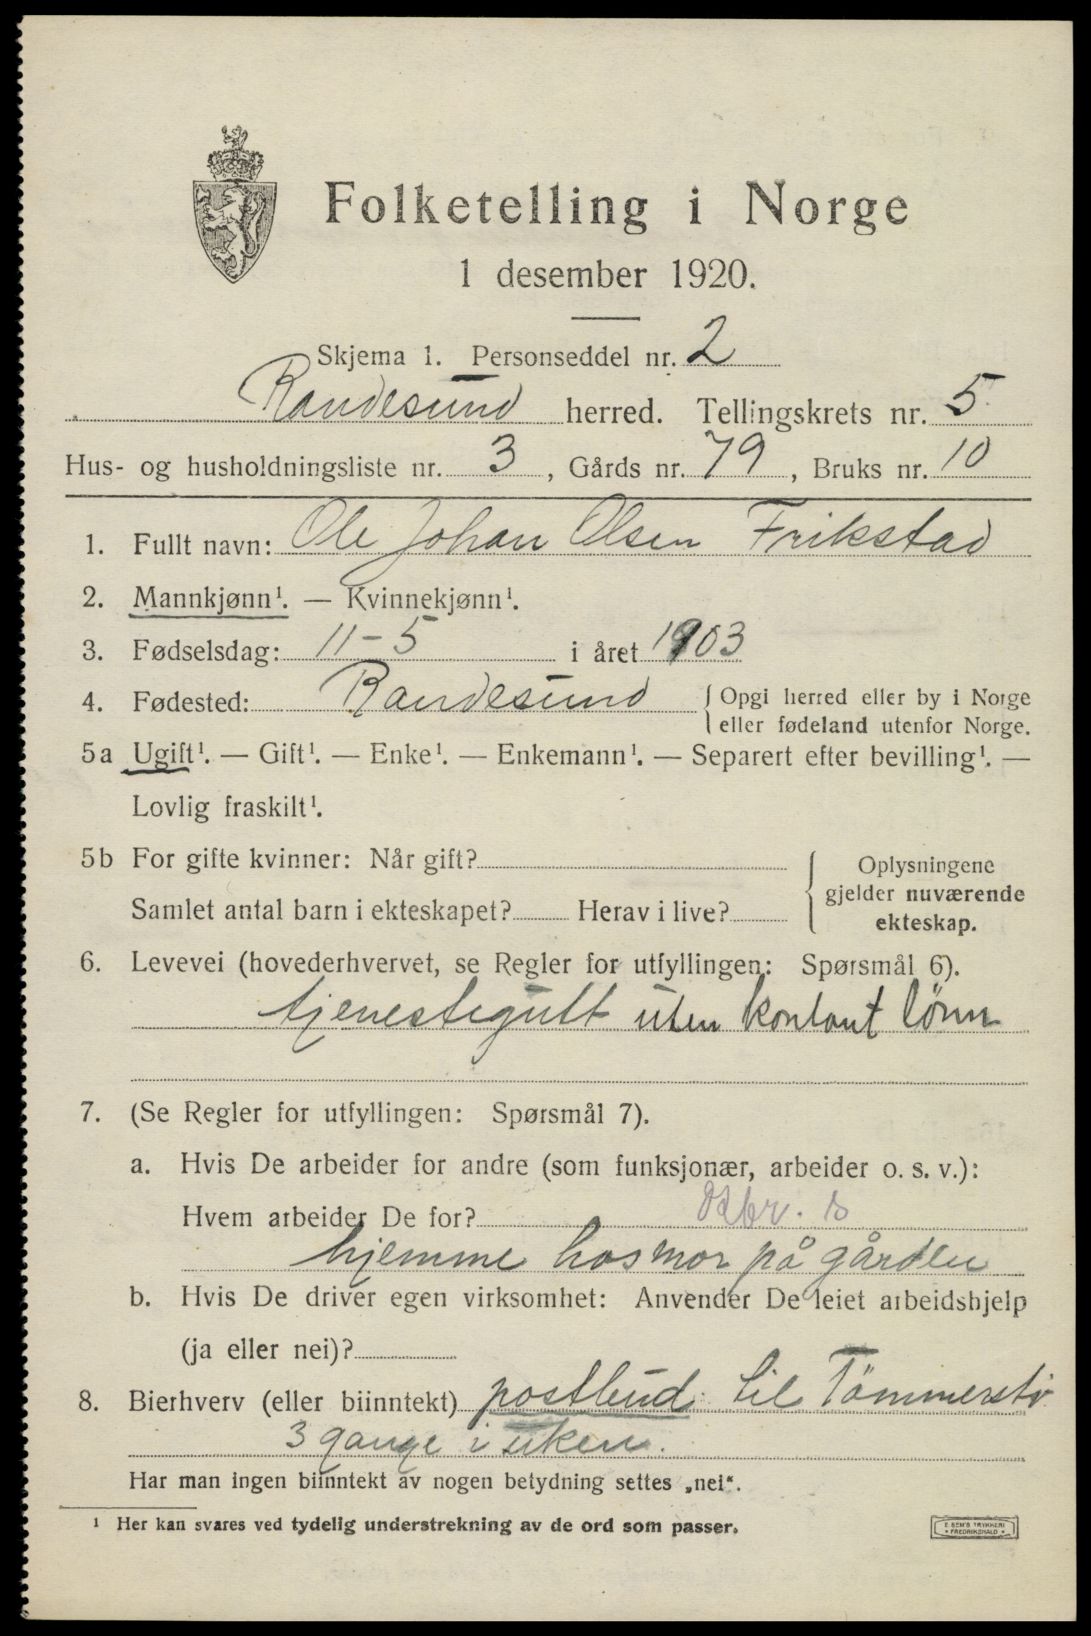 Folketelling i Norge
1 desember 1920.
Skjema 1. Personseddel nr. 2
Randesund herred. Tellingskrets nr. 5
Hus- og husholdningsliste nr. 3, Gårds nr. 79, Bruks nr. 10
1. Fullt navn: Ole Johan Olsen Frikstad
2. Mannkjønn¹. — Kvinnekjønn¹.
3. Fødselsdag: 11-5 i året 1903
4. Fødested: Randesund { Opgi herred eller by i Norge
eller fødeland utenfor Norge.
5a Ugift¹. — Gift¹. — Enke¹. — Enkemann¹. — Separert efter bevilling¹. —
Lovlig fraskilt¹.
5b For gifte kvinner: Når gift?
Samlet antal barn i ekteskapet? Herav i live?
{ Oplysningene
gjelder nuværende
ekteskap.
6. Levevei (hovederhvervet, se Regler for utfyllingen: Spørsmål 6).
tjenestegutt uten kontant lönn
7. (Se Regler for utfyllingen: Spørsmål 7).
a. Hvis De arbeider for andre (som funksjonær, arbeider o. s. v.):
Hvem arbeider De for?
hjemme hos mor på gården
b. Hvis De driver egen virksomhet: Anvender De leiet arbeidshjelp
(ja eller nei)?
8. Bierhverv (eller biinntekt) postbud til Tömmerstö
3 gange i uken.
Har man ingen biinntekt av nogen betydning settes „nei“.
¹ Her kan svares ved tydelig understrekning av de ord som passer.
E SEM'S TRYKKERI
• FREDRIKSHALD •